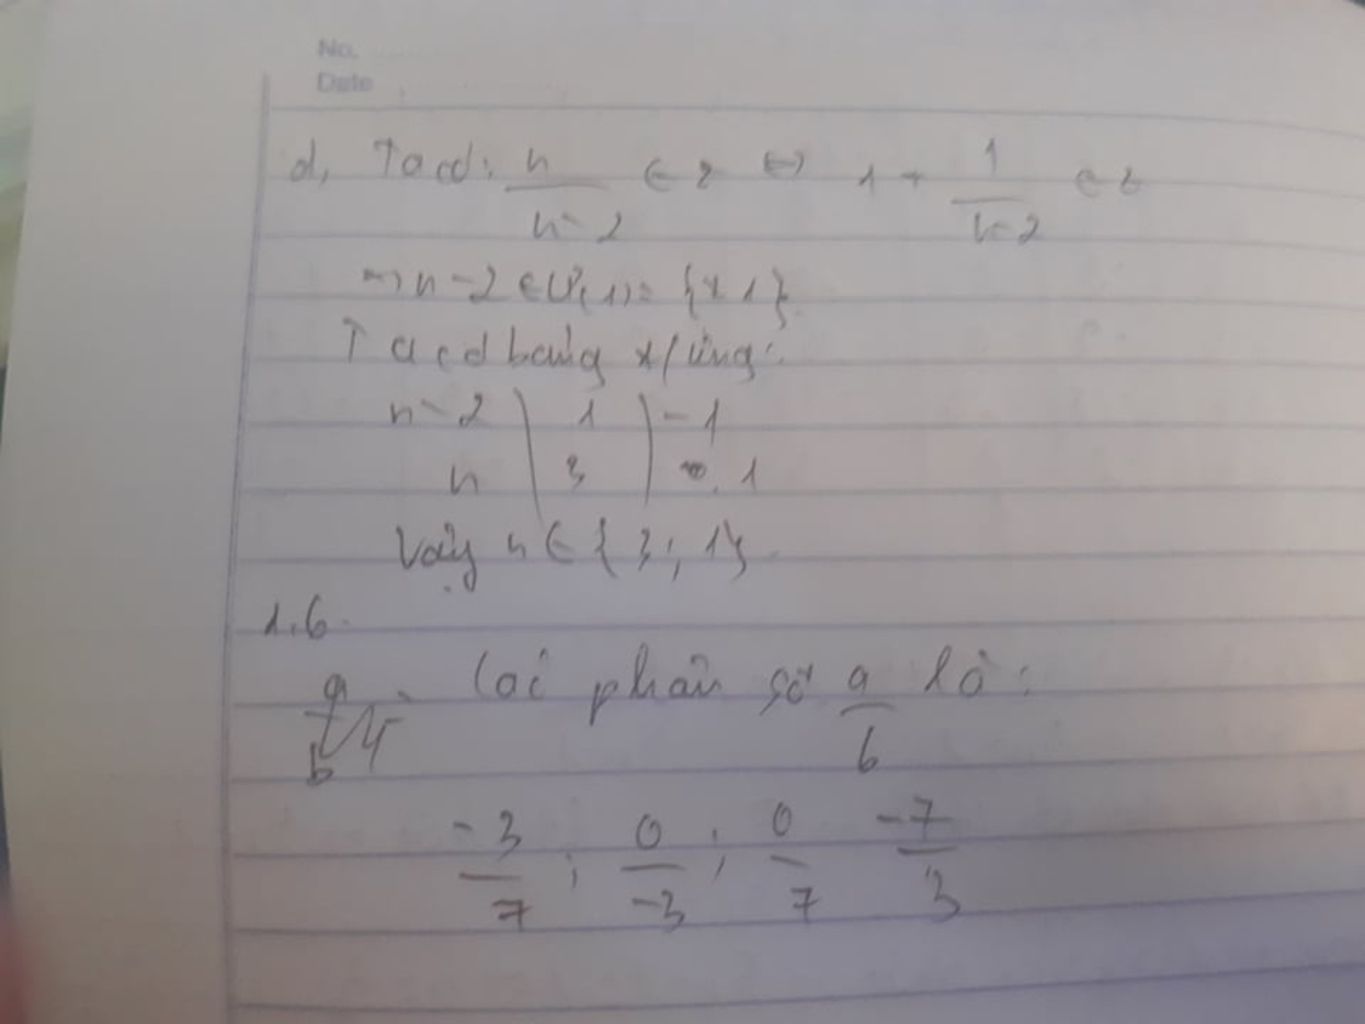 No.
Date
d, Ta có: n/n-2 ∈ Z ⇔ 1 + 1/n-2 ∈ Z
⇒ n-2 ∈ Ư(1) = {± 1}.
Ta có bảng t/ứng:
n-2 | 1 | -1
n | 3 | 1
Vậy n ∈ { 3; 1}
1.6.
Các phân số a/b là:
-3/7 ; 0/-3 ; 0/7 -7/3